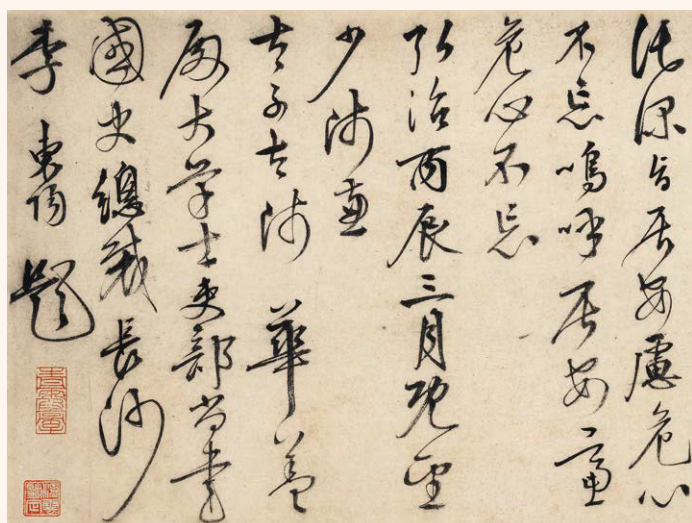 託深旨居安慮危心
不忘嗚呼居安
危心不忘
弘治丙辰三月既望
少師兼
太子太師 華蓋
殿大學士吏部尚書
國史總裁長沙
李東陽題